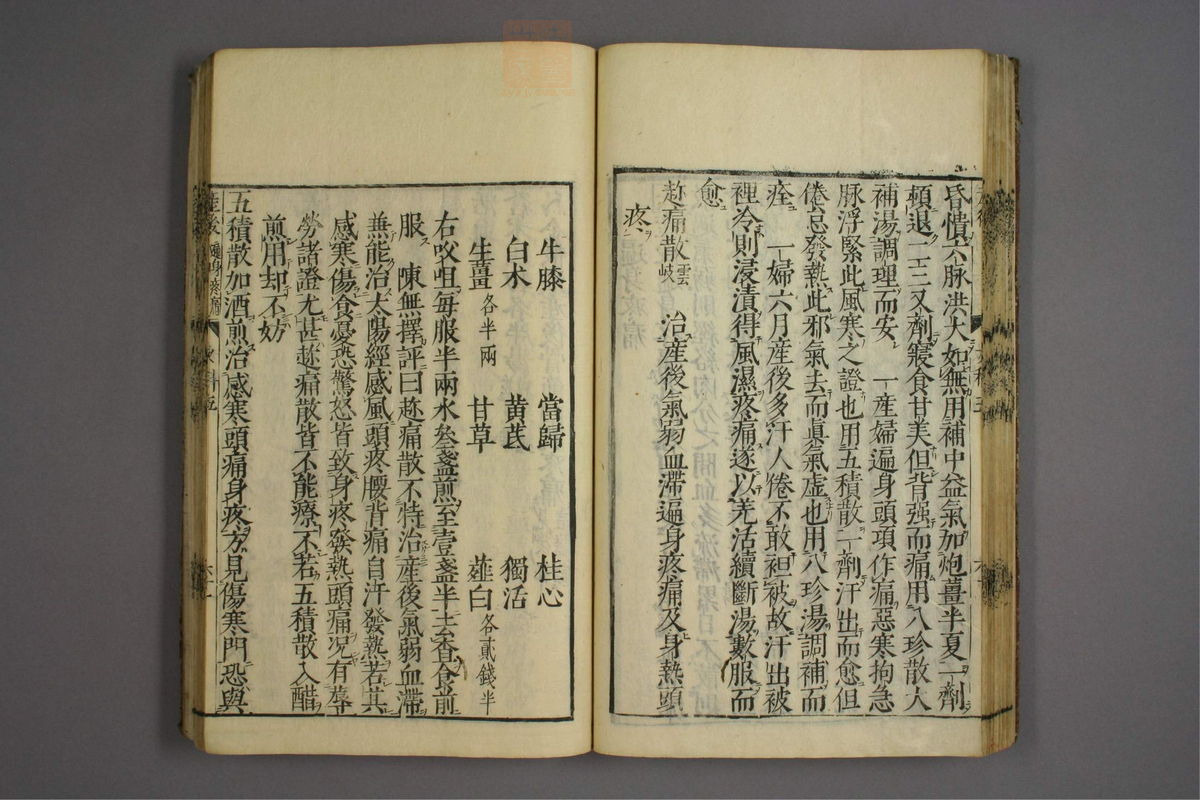 昏憒六脉洪大如無用補中益氣加炮薑半夏一劑
頓退二三又劑寢食甘美但背强而痛用八珍散大
補湯調理而安 一產婦遍身頭項作痛惡寒拘急
脉浮緊此風寒之證也用五積散一劑汗出而愈但
倦怠發熱此邪氣去而眞氣虚也用八珍湯調補而
痊 一婦六月產後多汗人倦不敢袒被故汗出被
裡冷則浸漬得風濕疼痛遂以羌活續斷湯數服而
愈
趂痛散雲岐 治產後氣弱血滯遍身疼痛及身熱頭
疼
牛膝 當歸 桂心
白朮 黄茋 獨活
生薑各半兩 甘草 薤白各貳錢半
右㕮咀每服半兩水叁盞煎至壹盞半去查食前
服 陳無擇評曰趂痛散不特治產後氣弱血滯
兼能治太陽經感風頭疼腰背痛自汗發熱若其
感寒傷食憂恐驚怒皆致身疼發熱頭痛况有蓐
勞諸證尤甚趂痛散皆不能療不若五積散入醋
煎用却不妨
五積散加酒煎治感寒頭痛身疼方見傷寒門恐與
產後 遍身疼痛